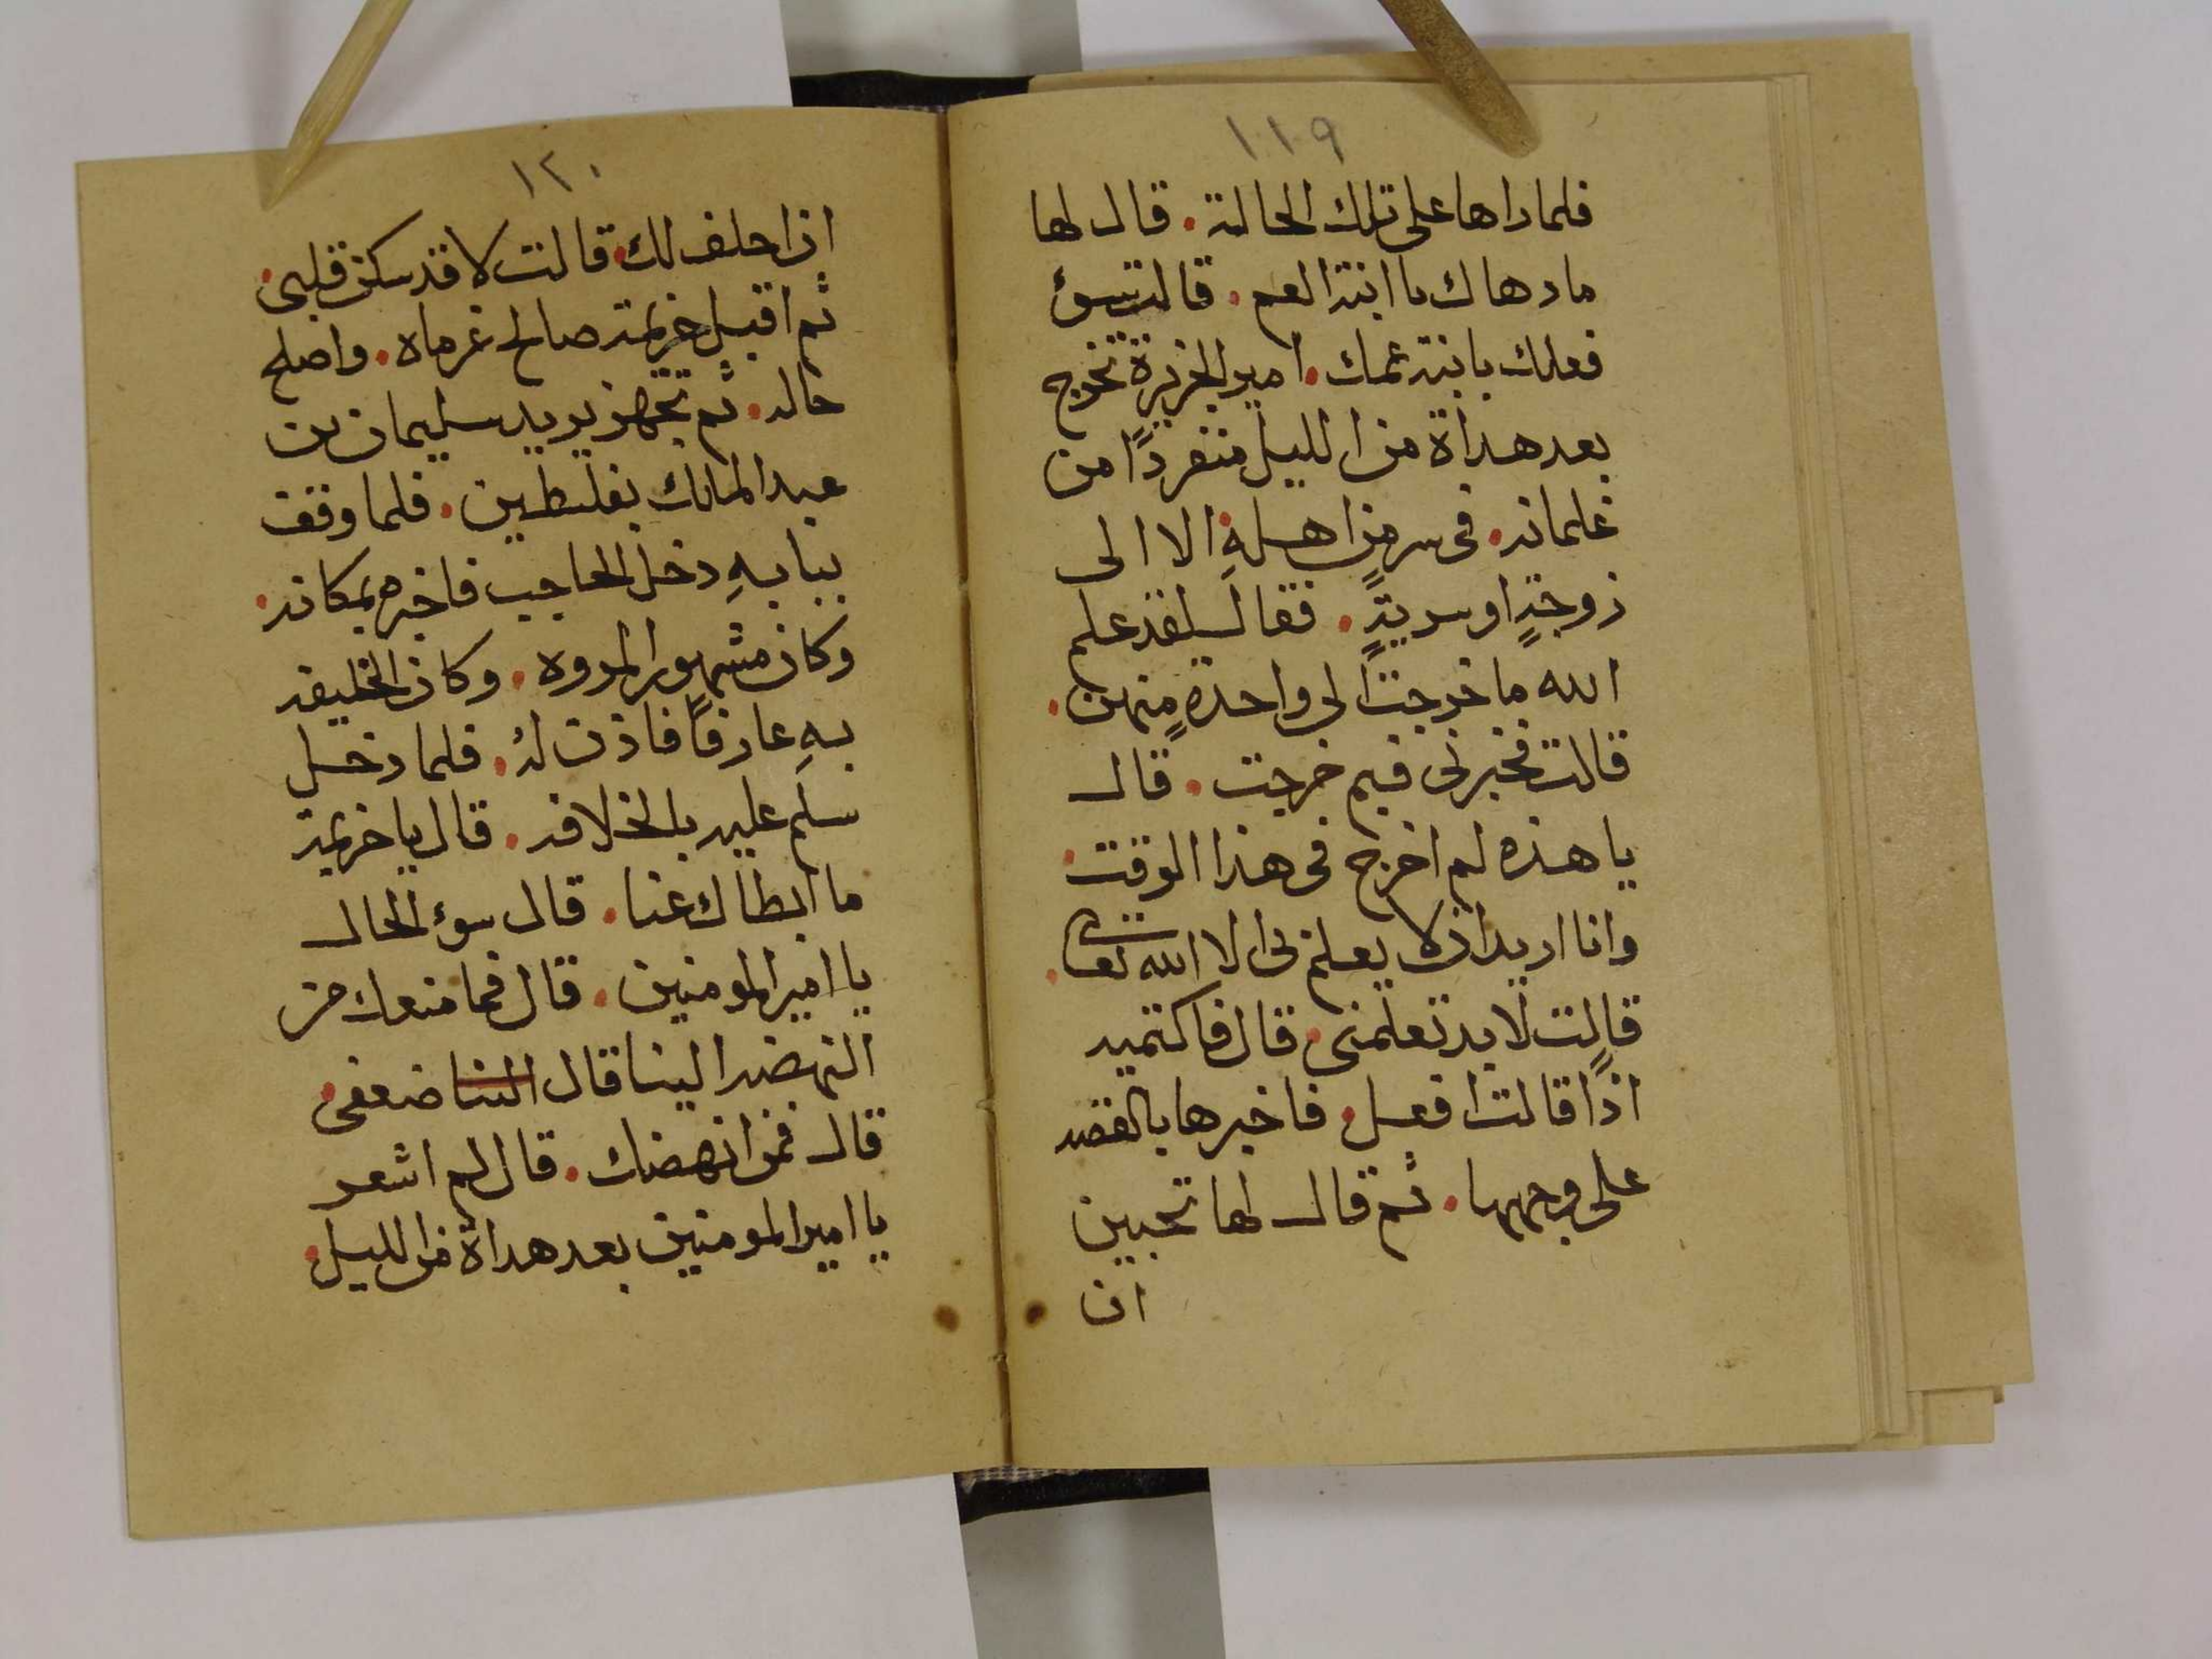 ١١٩
فلما راها على تلك الحالة. قال لها
ما دهاك يا ابنة العم. قالت سوء
فعلك بابنة عمك. امير الجزيرة تخرج
بعد هداة من الليل منفردًا من
غلمانه. فى سر من اهله الا الى
زوجةٍ او سريةٍ. فقال لقد علم
الله ما خرجت الى واحدةٍ منهن.
قالت فخبرنى فيم خرجت. قال
يا هذه لم اخرج فى هذا الوقت.
وانا اريد ان لا يعلم بى الا الله تعالى.
قالت لا بد تعلمنى. قال فاكتميه
اذًا قالت افعل. فاخبرها بالقصه
على وجهها. ثم قال لها تحبين
ان
١٢٠
ان احلف لك. قالت لا قد سكن قلبى.
ثم اقبل خزيمة صالح غرماه. واصلح
حاله. ثم تجهز يريد سليمان بن
عبد الملك بفلسطين. فلما وقف
ببابهِ دخل الحاجب فاخبره بمكانه.
وكان مشهور المروه. وكان الخليفه
بهِ عارفًا فاذن لهُ. فلما دخل
سلم عليه بالخلافه. قال يا خزيمة
ما ابطاك عنا. قال سوء الحال
يا امير المومنين. قال فما منعك من
النهضه الينا قال الينا ضعفى.
قال فمن انهضك. قال لم اشعر
يا امير المومنين بعد هداة من الليل.